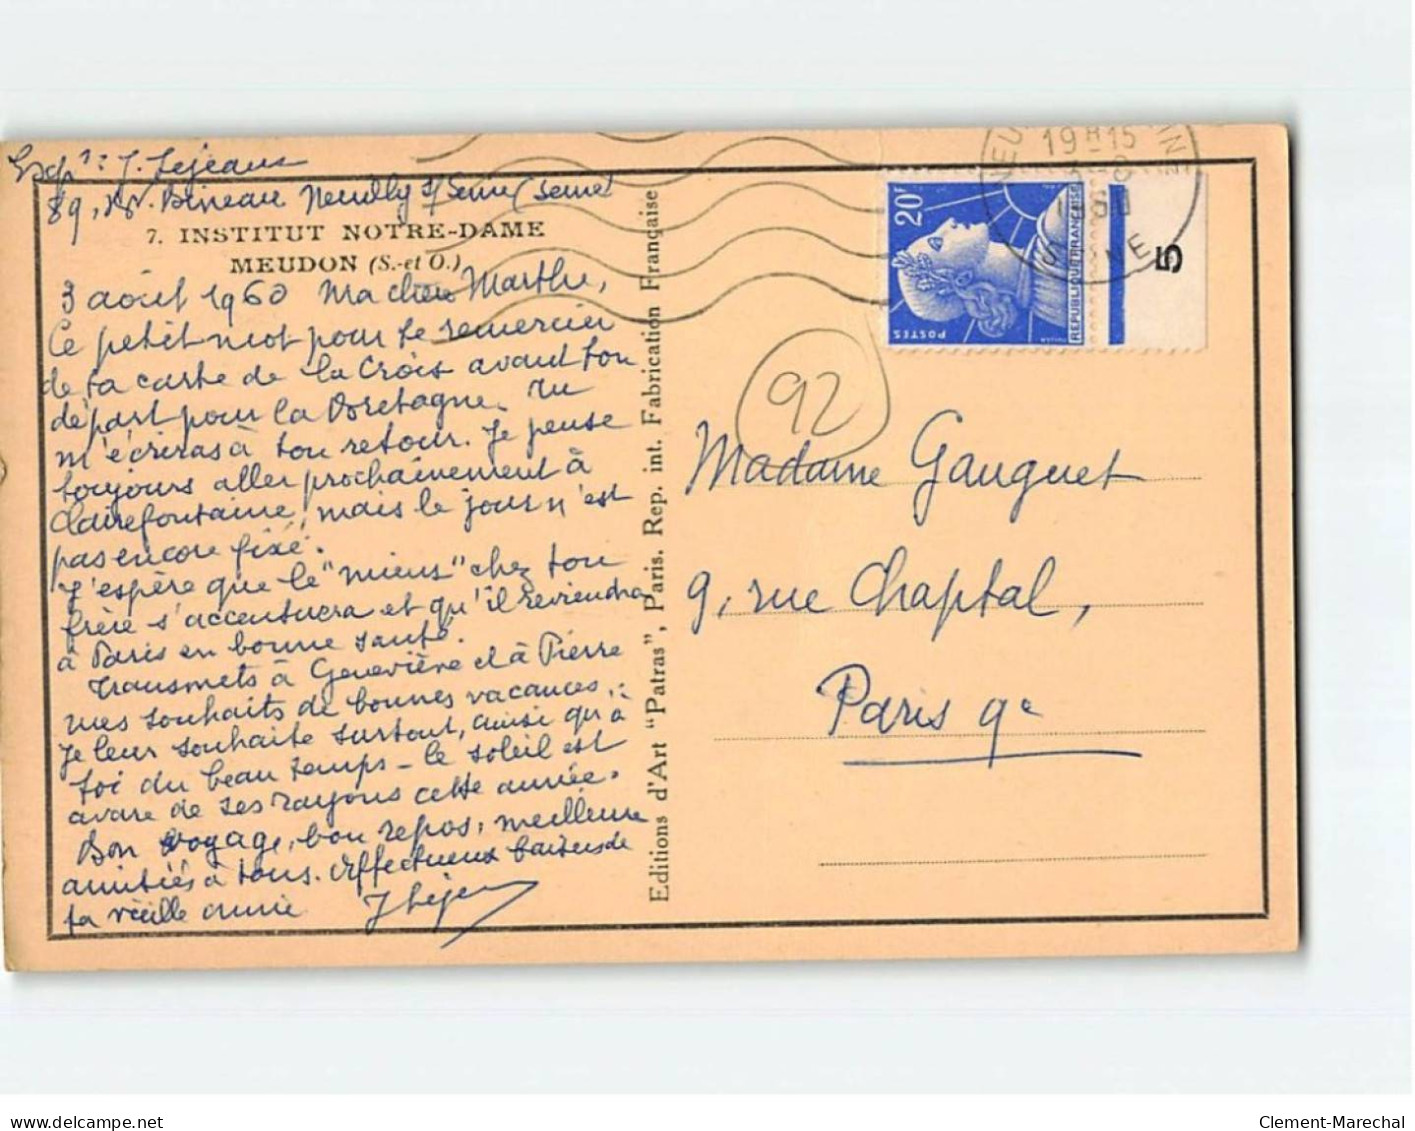 Expr : J. Lejeans
89, Bd. Bineau Neuilly s/Seine (Seine)
7. INSTITUT NOTRE-DAME
MEUDON (S.-et O.)
3 août 1960 Ma chère Marthe,
Ce petit mot pour te remercier
de ta carte de La Croix avant ton
départ pour la Bretagne. Tu
m'écriras à ton retour. Je pense
toujours aller prochainement à
Clairefontaine, mais le jour n'est
pas encore fixé.
J'espère que le "mieux" chez ton
frère s'accentuera et qu'il reviendra
à Paris en bonne santé.
Transmets à Geneviève et à Pierre
mes souhaits de bonnes vacances,
je leur souhaite surtout, ainsi qu'à
toi du beau temps - le soleil est
avare de ses rayons cette année.
Bon voyage, bon repos, meilleures
amitiés à tous. Affectueux baisers de
ta vieille amie J Lejeans
Editions d'Art "Patras", Paris. Rep. int. Fabrication Française
19 H 15
3-8
1960
20F
POSTES
REPUBLIQUE FRANÇAISE
5
92
Madame Gauguet
9, rue Chaptal,
Paris 9e
delcampe.net
Clement-Marechal